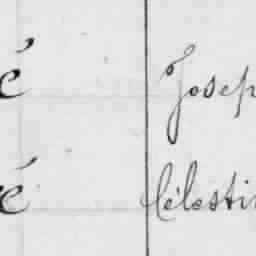 é Josep
é Célesti